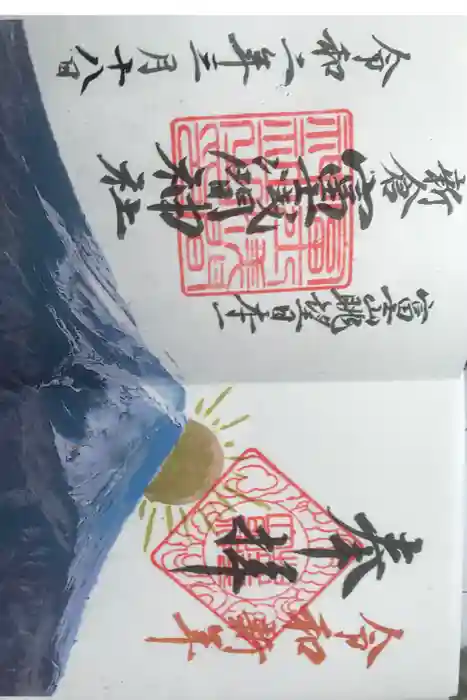 令和新年
奉拝
富士山眺望日本一
新倉
冨士浅間神社
令和二年三月十八日